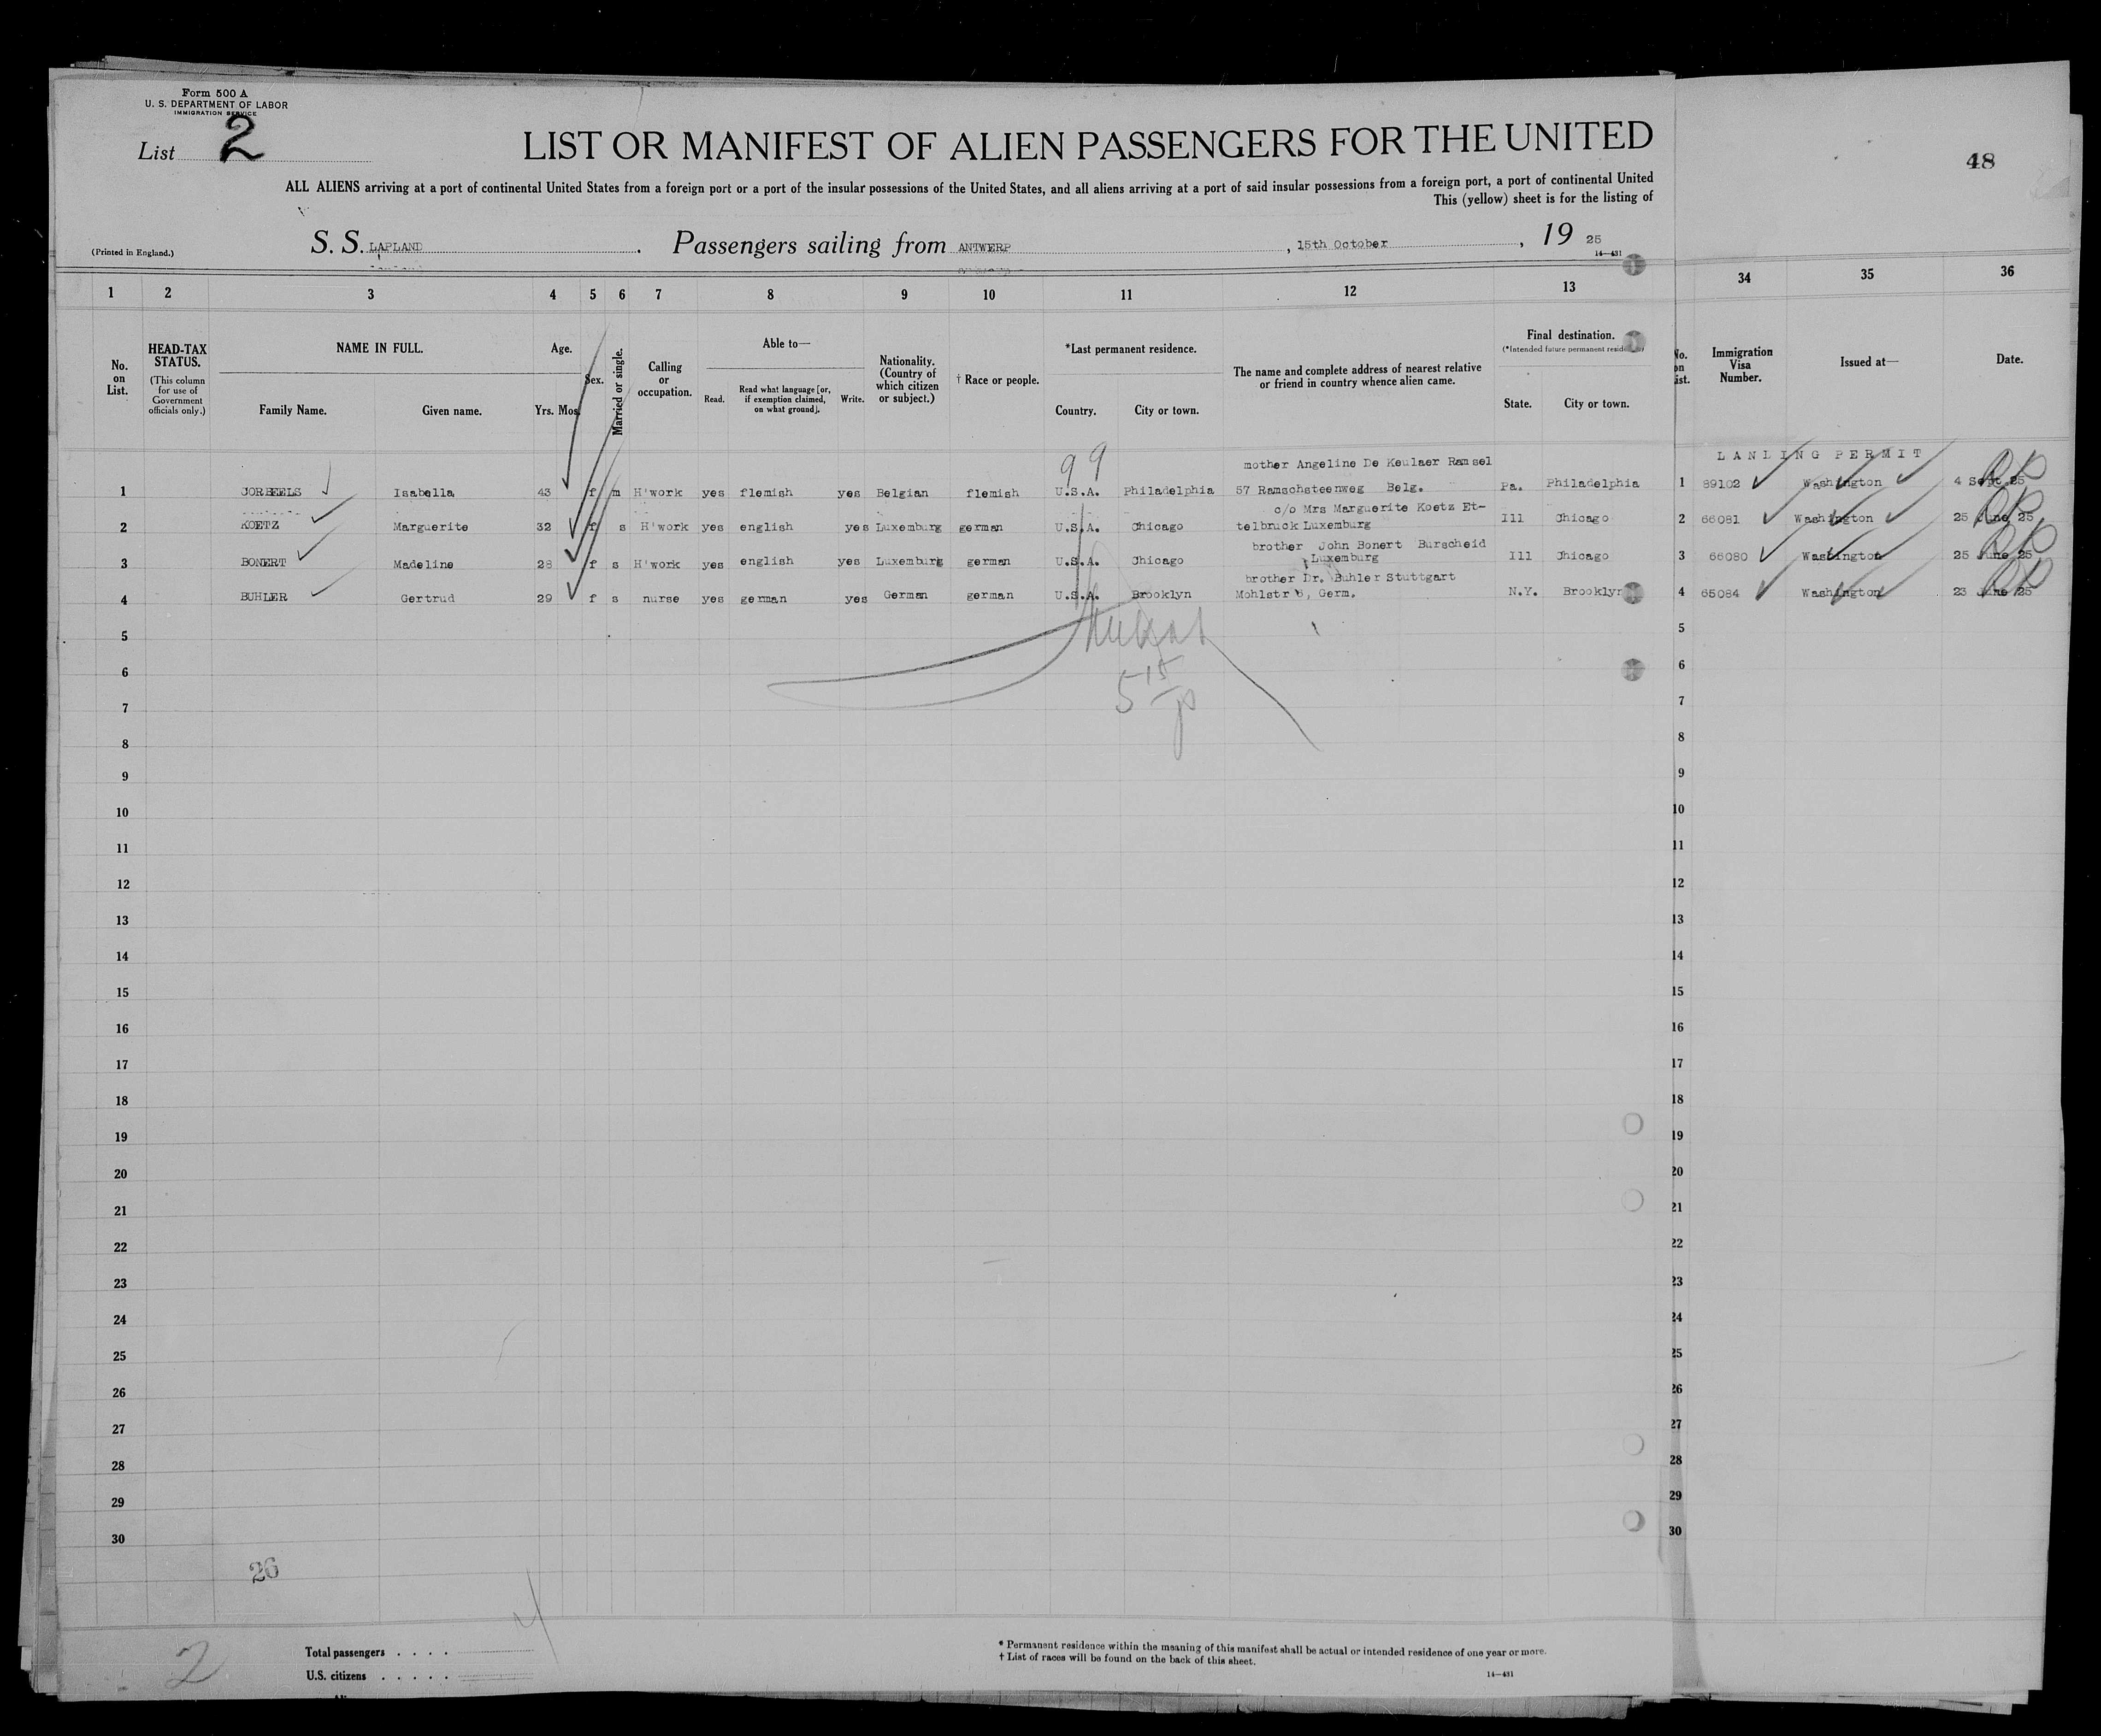 Form 500 A
U. S. DEPARTMENT OF LABOR
IMMIGRATION SERVICE
List 2
LIST OR MANIFEST OF ALIEN PASSENGERS FOR THE UNITED
48
ALL ALIENS arriving at a port of continental United States from a foreign port or a port of the insular possessions of the United States, and all aliens arriving at a port of said insular possessions from a foreign port, a port of continental United
This (yellow) sheet is for the listing of
(Printed in England.)
S. S. LAPLAND. Passengers sailing from ANTWERP, 15th October, 19 25
14—431
1 2 3 4 5 6 7 8 9 10 11 12 13 34 35 36
No. on List.
HEAD-TAX STATUS.
(This column for use of Government officials only.)
NAME IN FULL.
Family Name. Given name.
Age.
Yrs. Mos.
Sex.
Married or single.
Calling or occupation.
Able to—
Read. Read what language [or, if exemption claimed, on what ground]. Write.
Nationality. (Country of which citizen or subject.)
† Race or people.
*Last permanent residence.
Country. City or town.
The name and complete address of nearest relative or friend in country whence alien came.
Final destination.
(*Intended future permanent residence)
State. City or town.
No. on List.
Immigration Visa Number.
Issued at—
Date.
99
LANLING PERMIT
mother Angeline De Keulaer Ramsel
1 JORBEELS Isabella 43 f m H'work yes flemish yes Belgian flemish U.S.A. Philadelphia 57 Ramschsteenweg Belg. Pa. Philadelphia 1 89102 Washington 4 Sept 25
c/o Mrs Marguerite Koetz Et-
2 KOETZ Marguerite 32 f s H'work yes english yes Luxemburg german U.S.A. Chicago telbruck Luxemburg Ill Chicago 2 66081 Washington 25 June 25
brother John Bonert Burscheid
3 BONERT Madeline 28 f s H'work yes english yes Luxemburg german U.S.A. Chicago Luxemburg Ill Chicago 3 66080 Washington 25 June 25
brother Dr. Buhler Stuttgart
4 BUHLER Gertrud 29 f s nurse yes german yes German german U.S.A. Brooklyn Mohlstr 6, Germ. N.Y. Brooklyn 4 65084 Washington 23 June 25
5 5
6 6
7 7
8 8
9 9
10 10
11 11
12 12
13 13
14 14
15 15
16 16
17 17
18 18
19 19
20 20
21 21
22 22
23 23
24 24
25 25
26 26
27 27
28 28
29 29
30 30
26
2
4
Total passengers . . . .
U.S. citizens . . . . .
* Permanent residence within the meaning of this manifest shall be actual or intended residence of one year or more.
† List of races will be found on the back of this sheet.
14—431